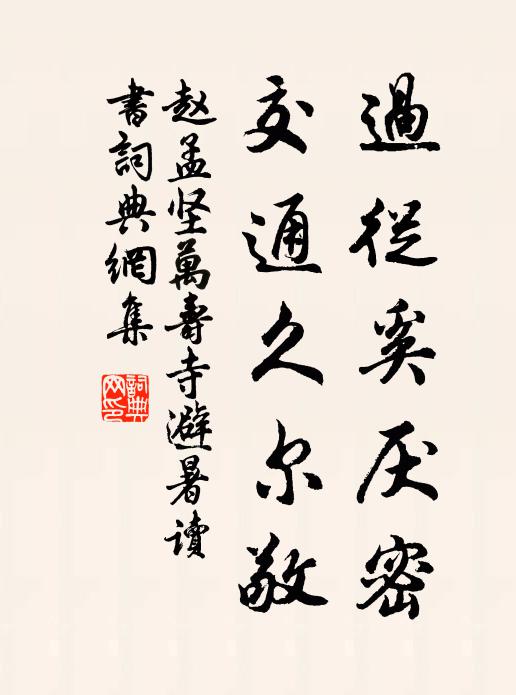 過從奚厌密
交通久尔敬
赵孟坚萬壽寺避暑讀
書詞典網集
詞典網印